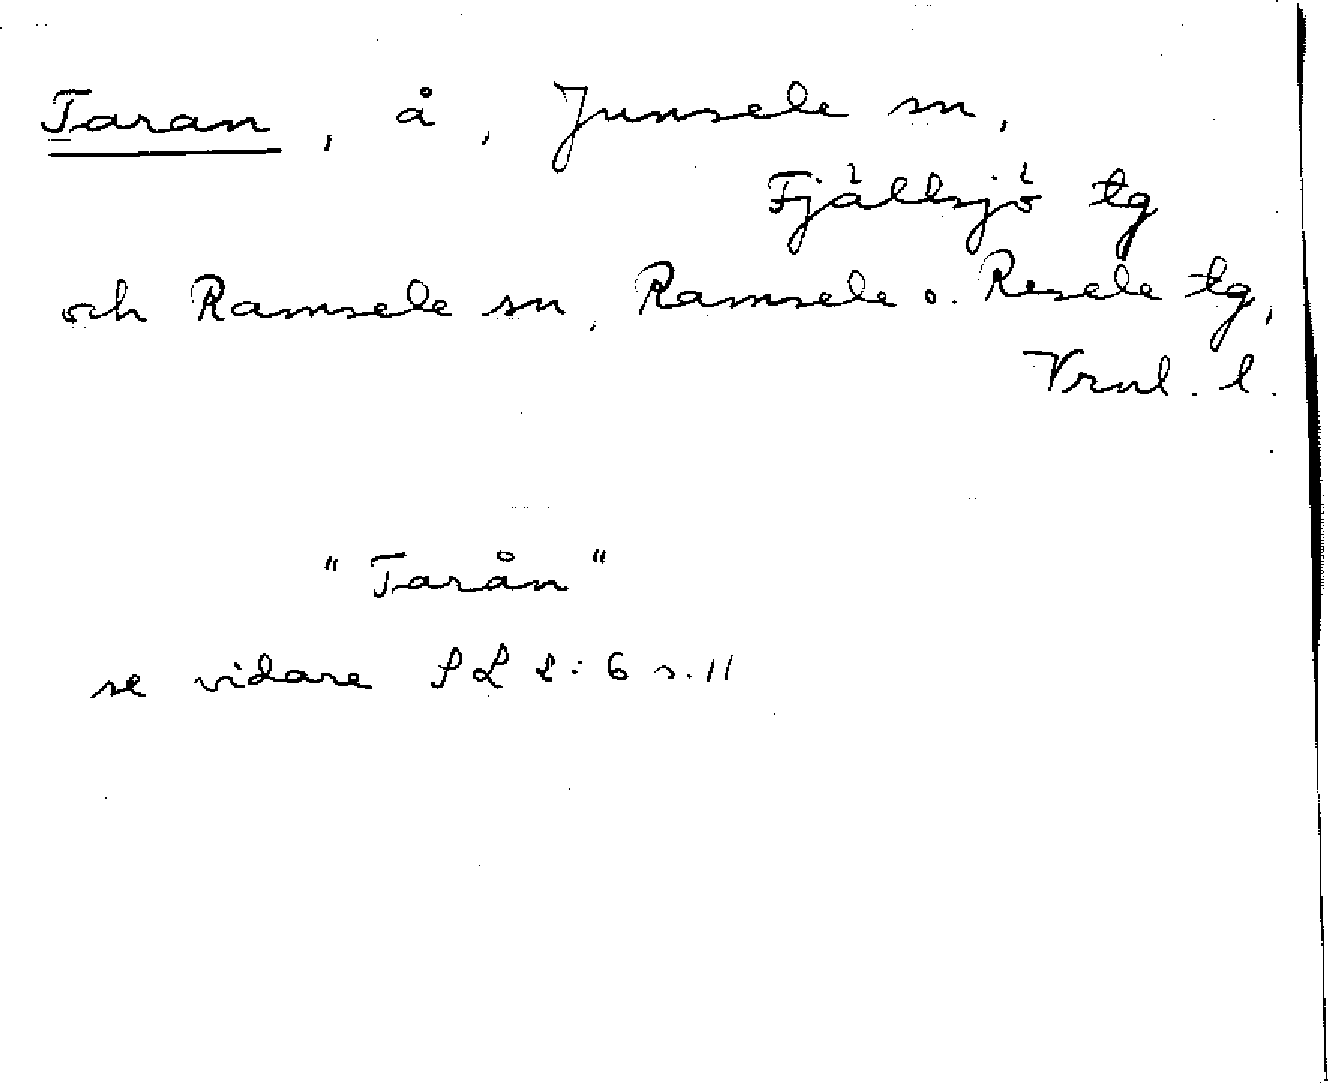 Taran, å, Junsele sn,
Fjällsjö tg
och Ramsele sn, Ramsele o. Resele tg,
Vrnl. l.
"Tarån"
se vidare SL 2:6 s. 11